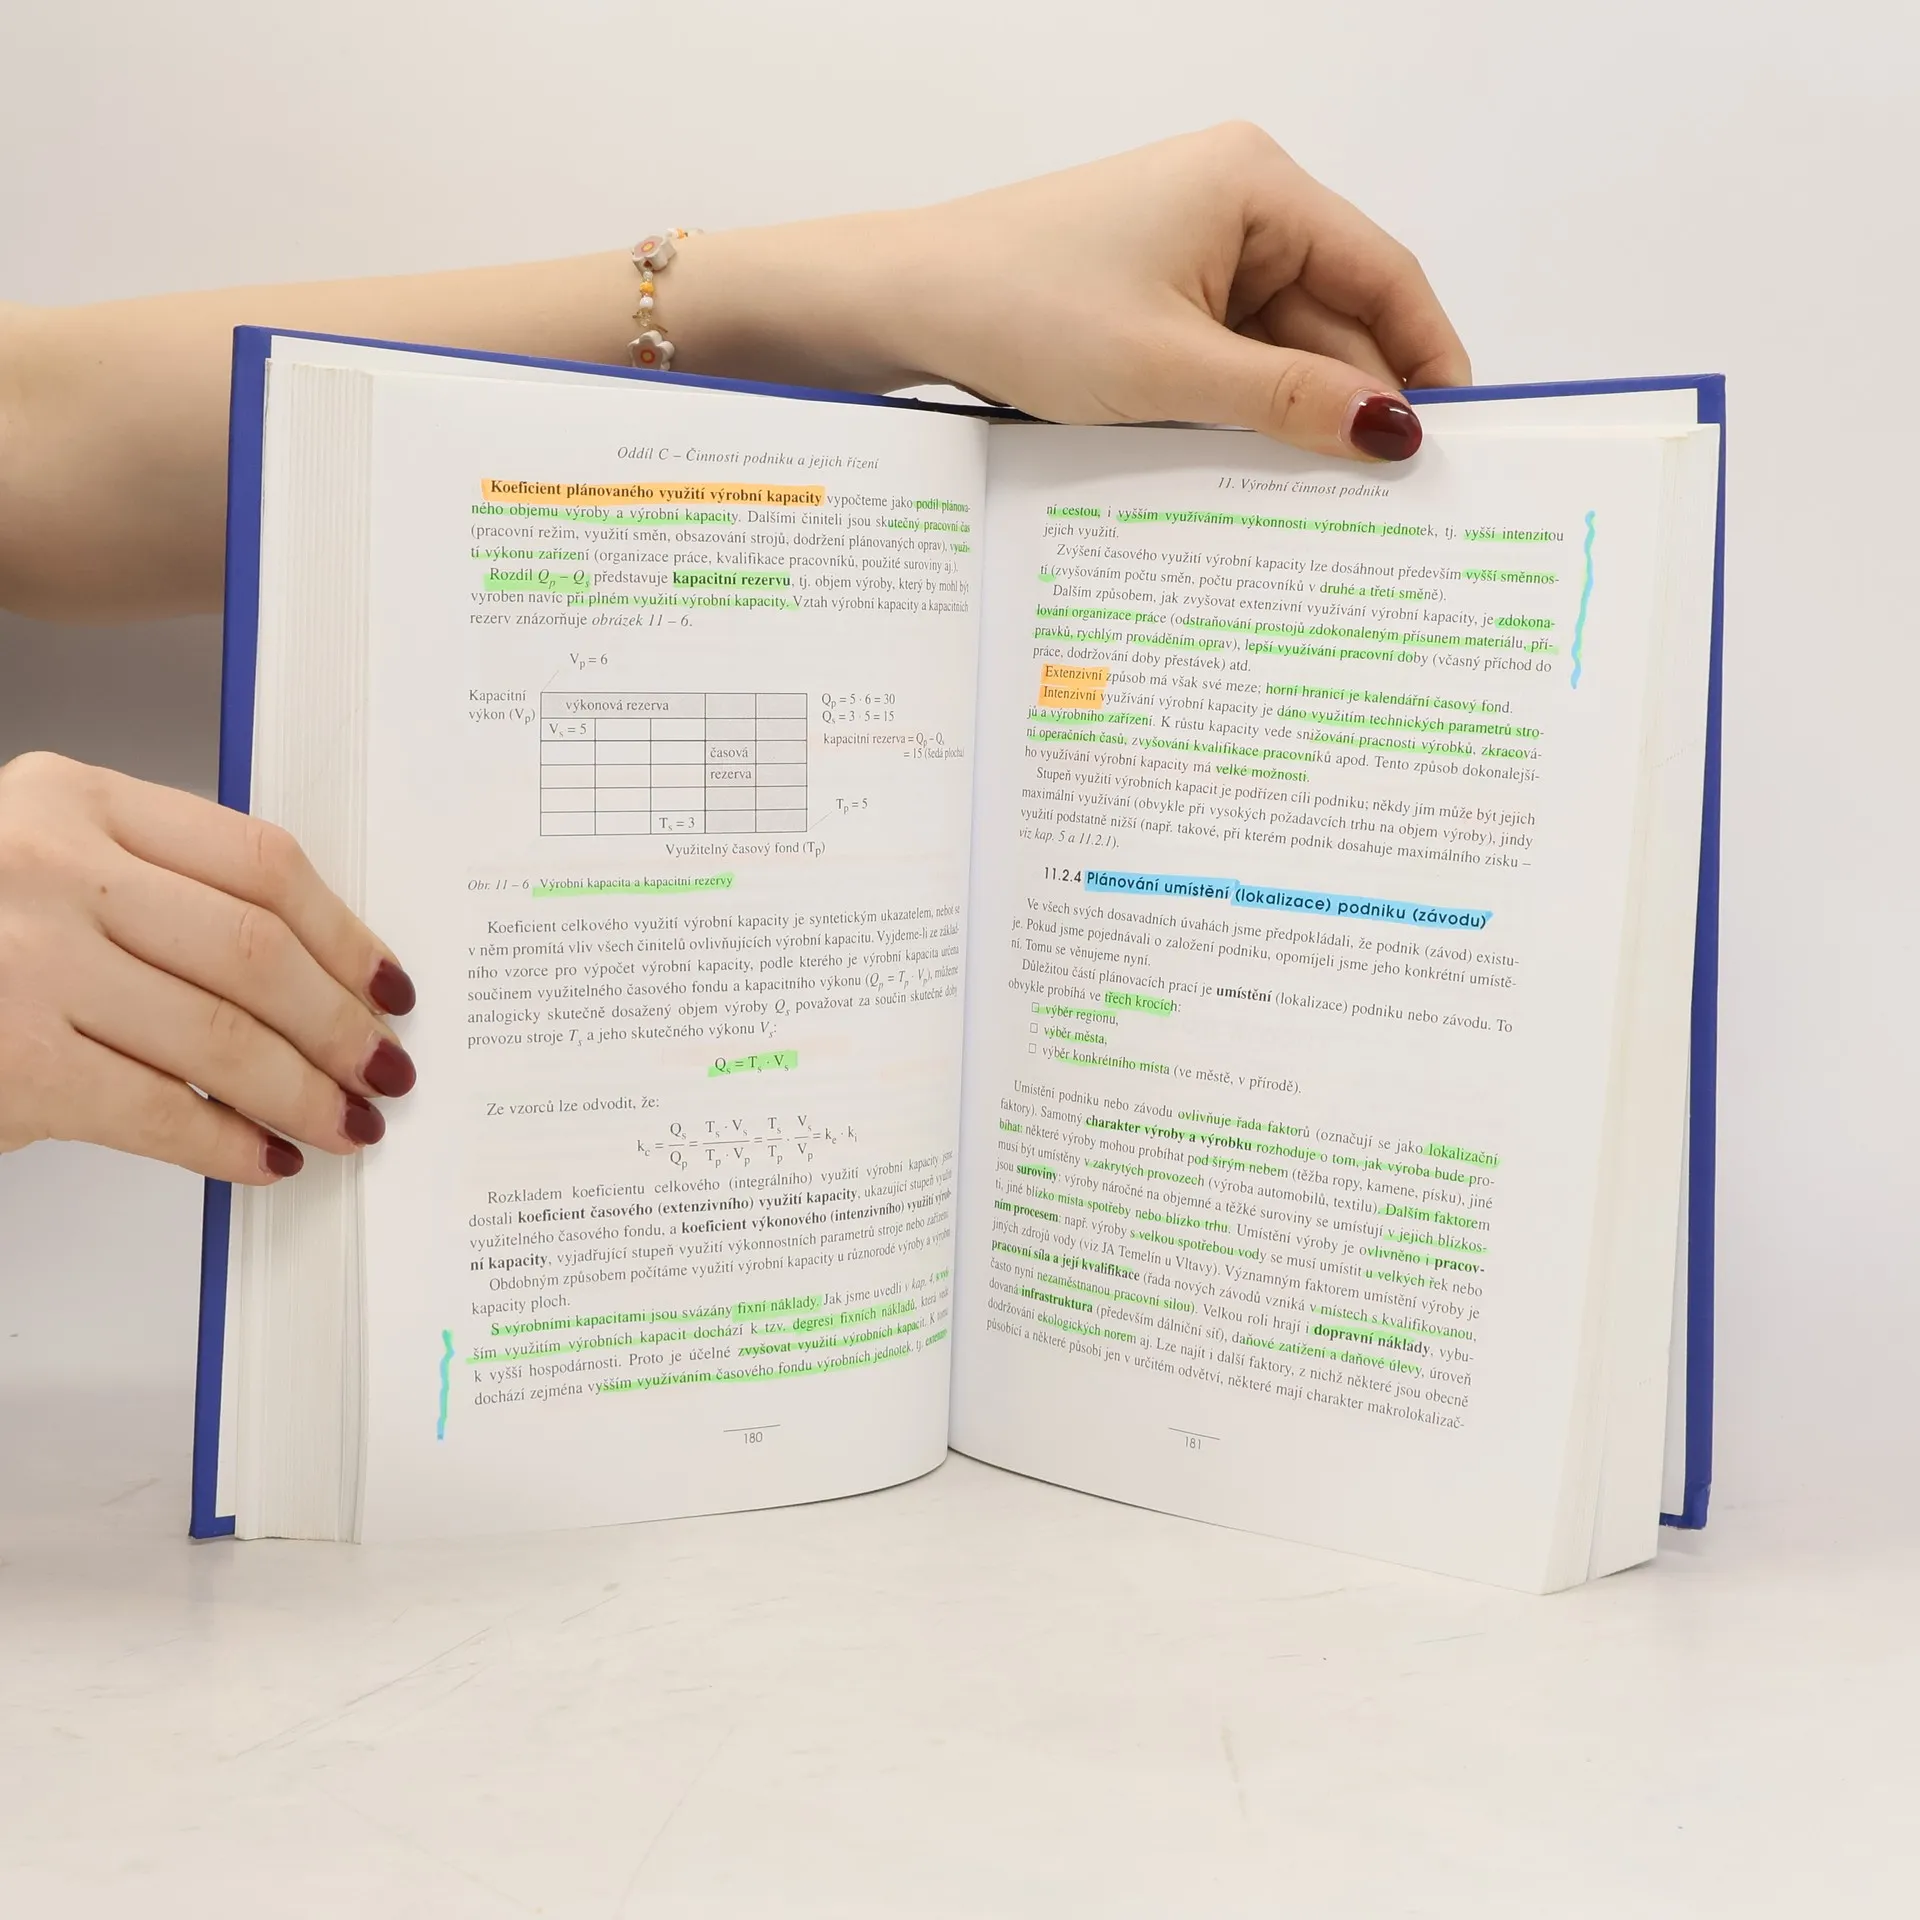 Oddíl C – Činnosti podniku a jejich řízení
Koeficient plánovaného využití výrobní kapacity vypočteme jako podíl plánova-
ného objemu výroby a výrobní kapacity. Dalšími činiteli jsou skutečný pracovní čas
(pracovní režim, využití směn, obsazování strojů, dodržení plánovaných oprav), využi-
tí výkonu zařízení (organizace práce, kvalifikace pracovníků, použité suroviny aj.).
Rozdíl Qp – Qs představuje kapacitní rezervu, tj. objem výroby, který by mohl být
vyroben navíc při plném využití výrobní kapacity. Vztah výrobní kapacity a kapacitních
rezerv znázorňuje obrázek 11 – 6.
Vp = 6
Kapacitní
výkon (Vp)
výkonová rezerva
Vs = 5
časová
rezerva
Ts = 3
Qp = 5 · 6 = 30
Qs = 3 · 5 = 15
kapacitní rezerva = Qp – Qs
= 15 (šedá plocha)
Tp = 5
Využitelný časový fond (Tp)
Obr. 11 – 6 Výrobní kapacita a kapacitní rezervy
Koeficient celkového využití výrobní kapacity je syntetickým ukazatelem, neboť se
v něm promítá vliv všech činitelů ovlivňujících výrobní kapacitu. Vyjdeme-li ze základ-
ního vzorce pro výpočet výrobní kapacity, podle kterého je výrobní kapacita určena
součinem využitelného časového fondu a kapacitního výkonu (Qp = Tp · Vp), můžeme
analogicky skutečně dosažený objem výroby Qs považovat za součin skutečné doby
provozu stroje Ts a jeho skutečného výkonu Vs:
Qs = Ts · Vs
Ze vzorců lze odvodit, že:
kc = Qs/Qp = Ts · Vs/Tp · Vp = Ts/Tp · Vs/Vp = ke · ki
Rozkladem koeficientu celkového (integrálního) využití výrobní kapacity jsme
dostali koeficient časového (extenzivního) využití kapacity, ukazující stupeň využití
využitelného časového fondu, a koeficient výkonového (intenzivního) využití výrob-
ní kapacity, vyjadřující stupeň využití výkonnostních parametrů stroje nebo zařízení.
Obdobným způsobem počítáme využití výrobní kapacity u různorodé výroby a výrobní
kapacity ploch.
S výrobními kapacitami jsou svázány fixní náklady. Jak jsme uvedli v kap. 4, s
ším využitím výrobních kapacit dochází k tzv. degresi fixních nákladů, která vede
k vyšší hospodárnosti. Proto je účelné zvyšovat využití výrobních kapacit. K tomu
dochází zejména vyšším využíváním časového fondu výrobních jednotek, tj. extenziv-
180
11. Výrobní činnost podniku
ní cestou, i vyšším využíváním výkonnosti výrobních jednotek, tj. vyšší intenzitou
jejich využití.
Zvýšení časového využití výrobní kapacity lze dosáhnout především vyšší směnnos-
tí (zvyšováním počtu směn, počtu pracovníků v druhé a třetí směně).
Dalším způsobem, jak zvyšovat extenzivní využívání výrobní kapacity, je zdokona-
lování organizace práce (odstraňování prostojů zdokonaleným přísunem materiálu, pří-
pravků, rychlým prováděním oprav), lepší využívání pracovní doby (včasný příchod do
práce, dodržování doby přestávek) atd.
Extenzivní způsob má však své meze; horní hranicí je kalendářní časový fond.
Intenzivní využívání výrobní kapacity je dáno využitím technických parametrů stro-
jů a výrobního zařízení. K růstu kapacity vede snižování pracnosti výrobků, zkracová-
ní operačních časů, zvyšování kvalifikace pracovníků apod. Tento způsob dokonalejší-
ho využívání výrobní kapacity má velké možnosti.
Stupeň využití výrobních kapacit je podřízen cíli podniku; někdy jím může být jejich
maximální využívání (obvykle při vysokých požadavcích trhu na objem výroby), jindy
využití podstatně nižší (např. takové, při kterém podnik dosahuje maximálního zisku –
viz kap. 5 a 11.2.1).
11.2.4 Plánování umístění (lokalizace) podniku (závodu)
Ve všech svých dosavadních úvahách jsme předpokládali, že podnik (závod) existu-
je. Pokud jsme pojednávali o založení podniku, opomíjeli jsme jeho konkrétní umístě-
ní. Tomu se věnujeme nyní.
Důležitou částí plánovacích prací je umístění (lokalizace) podniku nebo závodu. To
obvykle probíhá ve třech krocích:
□ výběr regionu,
□ výběr města,
□ výběr konkrétního místa (ve městě, v přírodě).
Umístění podniku nebo závodu ovlivňuje řada faktorů (označují se jako lokalizační
faktory). Samotný charakter výroby a výrobku rozhoduje o tom, jak výroba bude pro-
bíhat: některé výroby mohou probíhat pod širým nebem (těžba ropy, kamene, písku), jiné
musí být umístěny v zakrytých provozech (výroba automobilů, textilu). Dalším faktorem
jsou suroviny: výroby náročné na objemné a těžké suroviny se umisťují v jejich blízkos-
ti, jiné blízko místa spotřeby nebo blízko trhu. Umístění výroby je ovlivněno i pracov-
ním procesem: např. výroby s velkou spotřebou vody se musí umístit u velkých řek nebo
jiných zdrojů vody (viz JA Temelín u Vltavy). Významným faktorem umístění výroby je
pracovní síla a její kvalifikace (řada nových závodů vzniká v místech s kvalifikovanou,
často nyní nezaměstnanou pracovní silou). Velkou roli hrají i dopravní náklady, vybu-
dovaná infrastruktura (především dálniční síť), daňové zatížení a daňové úlevy, úroveň
dodržování ekologických norem aj. Lze najít i další faktory, z nichž některé jsou obecně
působící a některé působí jen v určitém odvětví, některé mají charakter makrolokalizač-
181